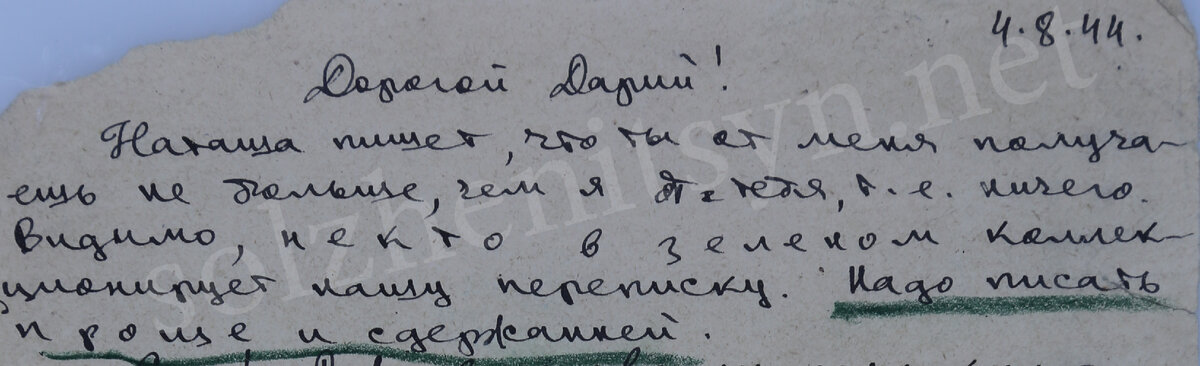 4.8.44.
Дорогой Дарий!
Наташа пишет, что ты от меня получа-
ешь не больше, чем я от тебя, т.е. ничего.
Видимо, некто в зеленом коллек-
ционирует нашу переписку. Надо писать
проще и сдержанней.
solzhenitsyn.net